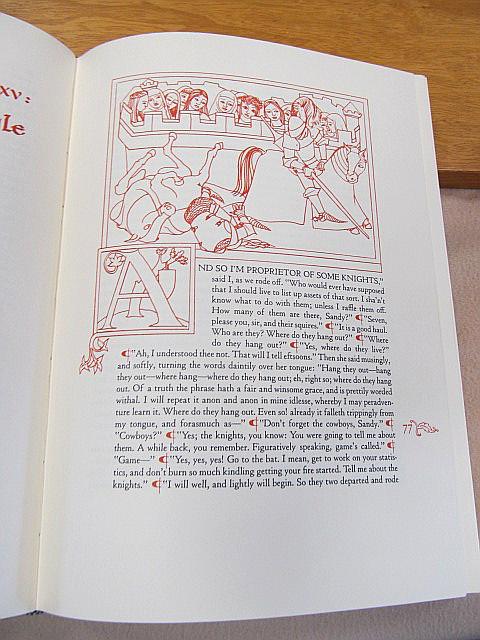 XV:
gle
AND SO I'M PROPRIETOR OF SOME KNIGHTS,"
said I, as we rode off. "Who would ever have supposed
that I should live to list up assets of that sort. I sha'n't
know what to do with them; unless I raffle them off.
How many of them are there, Sandy?" ¶ "Seven,
please you, sir, and their squires." ¶ "It is a good haul.
Who are they? Where do they hang out?" ¶ "Where
do they hang out?" ¶ "Yes, where do they live?"
¶ "Ah, I understood thee not. That will I tell eftsoons." Then she said musingly,
and softly, turning the words daintily over her tongue: "Hang they out—hang
they out—where hang—where do they hang out; eh, right so; where do they hang
out. Of a truth the phrase hath a fair and winsome grace, and is prettily worded
withal. I will repeat it anon and anon in mine idlesse, whereby I may peradven-
ture learn it. Where do they hang out. Even so! already it falleth trippingly from
my tongue, and forasmuch as—" ¶ "Don't forget the cowboys, Sandy." ¶
"Cowboys?" ¶ "Yes; the knights, you know: You were going to tell me about
them. A while back, you remember. Figuratively speaking, game's called." ¶
"Game—" ¶ "Yes, yes, yes! Go to the bat. I mean, get to work on your statis-
tics, and don't burn so much kindling getting your fire started. Tell me about the
knights." ¶ "I will well, and lightly will begin. So they two departed and rode
77